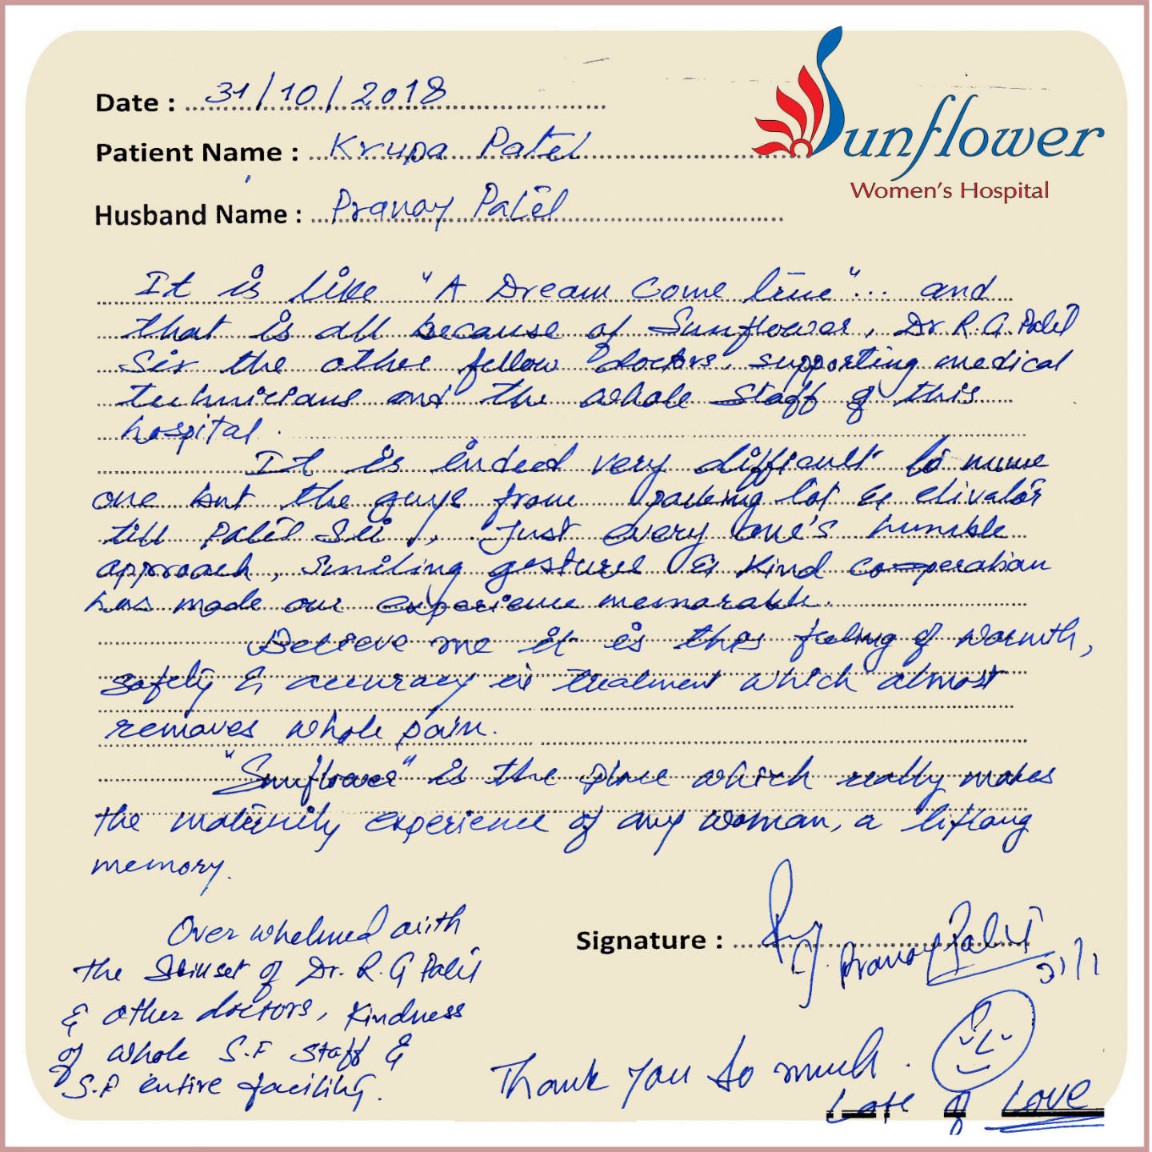 Date : 31/10/2018
Sunflower
Women's Hospital
Patient Name : Krupa Patel
Husband Name : Pranay Patel
It is like "A Dream Come true"... and
that is all because of Sunflower, Dr R.G. Patel
Sir the other fellow doctors, supporting medical
technicians and the whole staff of this
hospital.
It is indeed very difficult to name
one but the guys from parking lot & elivator
till Patel Sir, Just every one's humble
approach, smiling gestures & kind co-operation
has made our experience memorable.
Believe me it is this feeling of warmth,
safety & accuracy in treatment which almost
removes whole pain.
"Sunflower" is the place which really makes
the maternity experience of any woman, a liflong
memory.
Over whelmed with
the Skillset of Dr. R.G Patel
& other doctors, Kindness
of whole S.F staff &
S.F entire facility.
Signature :
Pranay Patel
Thank you so much.
Lots of Love